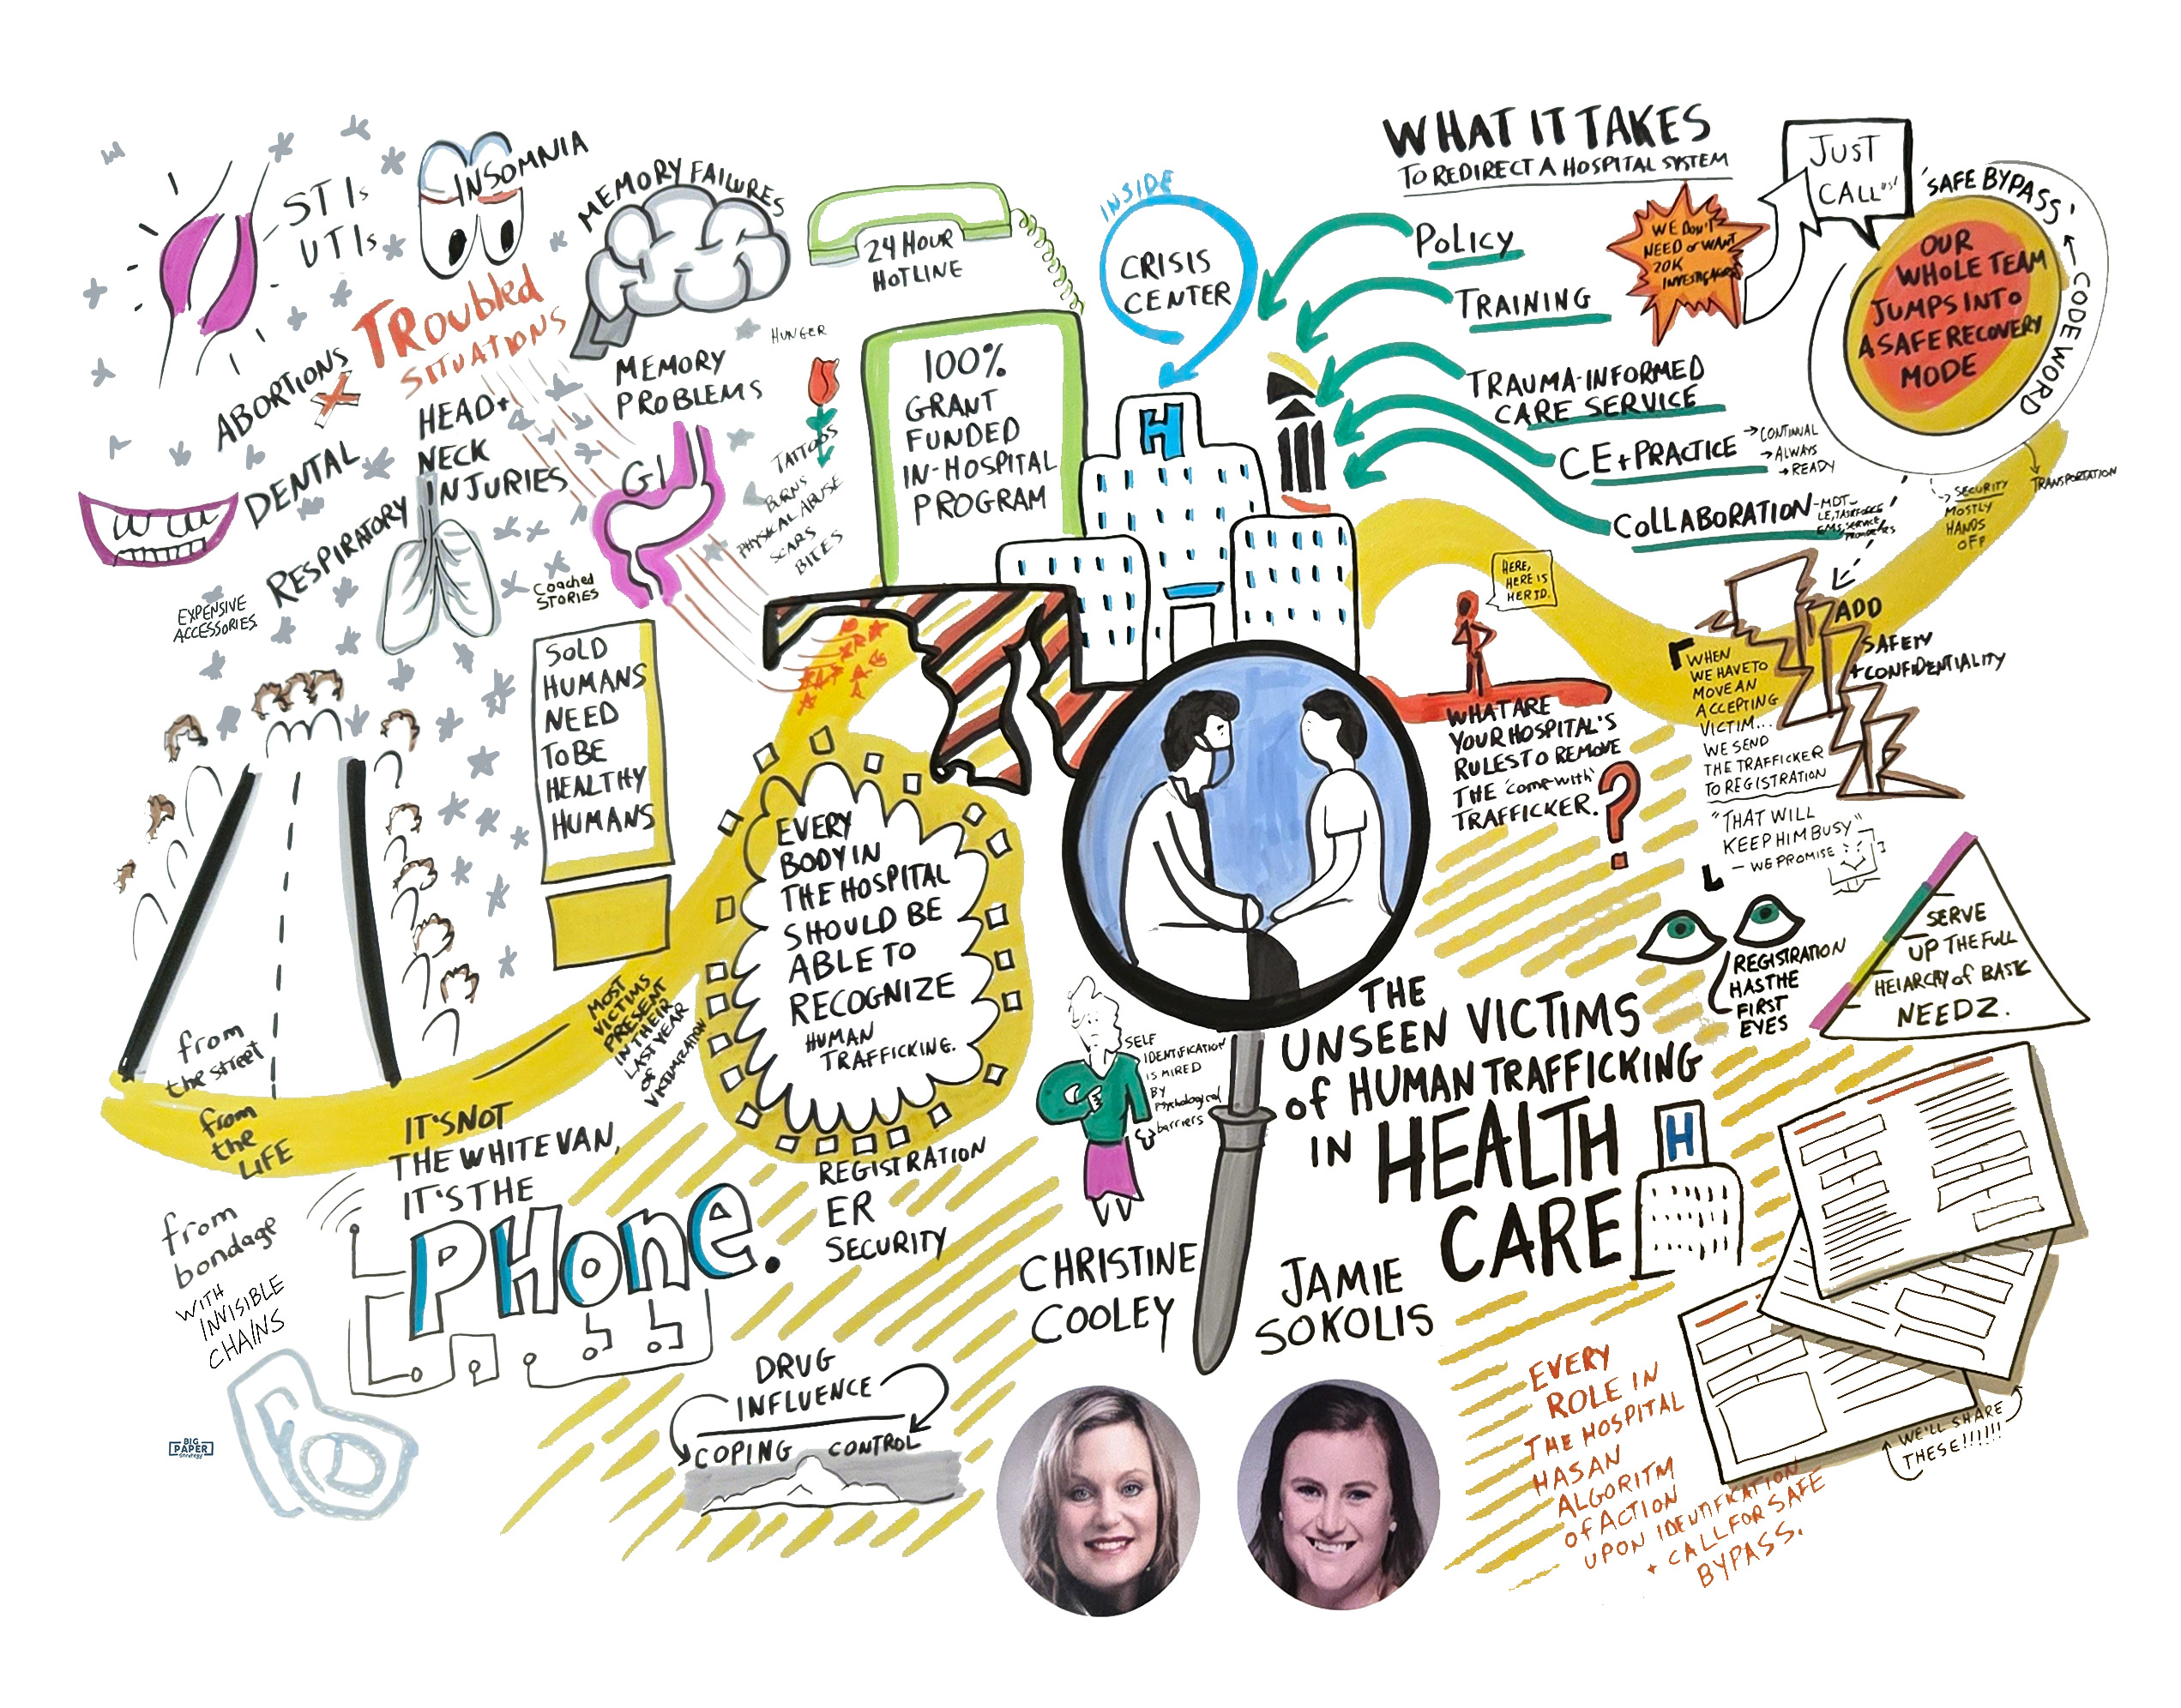 STIs
UTIs
INSOMNIA
MEMORY FAILURES
TROUBLED
SITUATIONS
ABORTIONS
X
DENTAL
HEAD +
NECK
INJURIES
RESPIRATORY
MEMORY
PROBLEMS
GI
HUNGER
TATTOOS
BURNS
PHYSICAL ABUSE
SCARS
BITES
COACHED
STORIES
EXPENSIVE
ACCESSORIES
SOLD
HUMANS
NEED
TO BE
HEALTHY
HUMANS
24 HOUR
HOTLINE
100%
GRANT
FUNDED
IN-HOSPITAL
PROGRAM
INSIDE
CRISIS
CENTER
H
WHAT IT TAKES
TO REDIRECT A HOSPITAL SYSTEM
POLICY
TRAINING
TRAUMA-INFORMED
CARE SERVICE
CE + PRACTICE
→ CONTINUAL
→ ALWAYS
→ READY
COLLABORATION
-MDT-
LE, TASKFORCE
EMS, SERVICE
PROVIDERS
WE DON'T
NEED or WANT
20K
JUST
CALL us!
'SAFE BYPASS'
← CODE WORD
OUR
WHOLE TEAM
JUMPS INTO
A SAFE RECOVERY
MODE
TRANSPORTATION
SECURITY
MOSTLY
HANDS
OFF
ADD
SAFETY
+ CONFIDENTIALITY
HERE,
HERE IS
HER ID.
WHAT ARE
YOUR HOSPITAL'S
RULES TO REMOVE
THE 'come with'
TRAFFICKER.
?
WHEN
WE HAVE TO
MOVE AN
ACCEPTING
VICTIM...
WE SEND
THE TRAFFICKER
TO REGISTRATION
"THAT WILL
KEEP HIM BUSY"
- WE PROMISE
REGISTRATION
HAS THE
FIRST
EYES
SERVE
UP THE FULL
HEIARCHY of BASIC
NEEDZ.
EVERY
BODY IN
THE HOSPITAL
SHOULD BE
ABLE TO
RECOGNIZE
HUMAN
TRAFFICKING.
REGISTRATION
ER
SECURITY
MOST
VICTIMS
PRESENT
IN THEIR
LAST YEAR
OF
VICTIMIZATION
from
the street
from
the
LIFE
from
bondage
WITH
INVISIBLE
CHAINS
IT'S NOT
THE WHITE VAN,
IT'S THE
PHONE.
DRUG
INFLUENCE
COPING
CONTROL
SELF
IDENTIFICATION
IS MIRED
BY
Psychological
barriers
THE
UNSEEN VICTIMS
of HUMAN TRAFFICKING
IN HEALTH
CARE
H
CHRISTINE
COOLEY
JAMIE
SOKOLIS
EVERY
ROLE IN
THE HOSPITAL
HAS AN
ALGORITM
of ACTION
UPON IDENTIFIKATION
+ CALL FOR SAFE
BYPASS.
WE'LL SHARE
THESE!!!!!!
BIG
PAPER
strategy